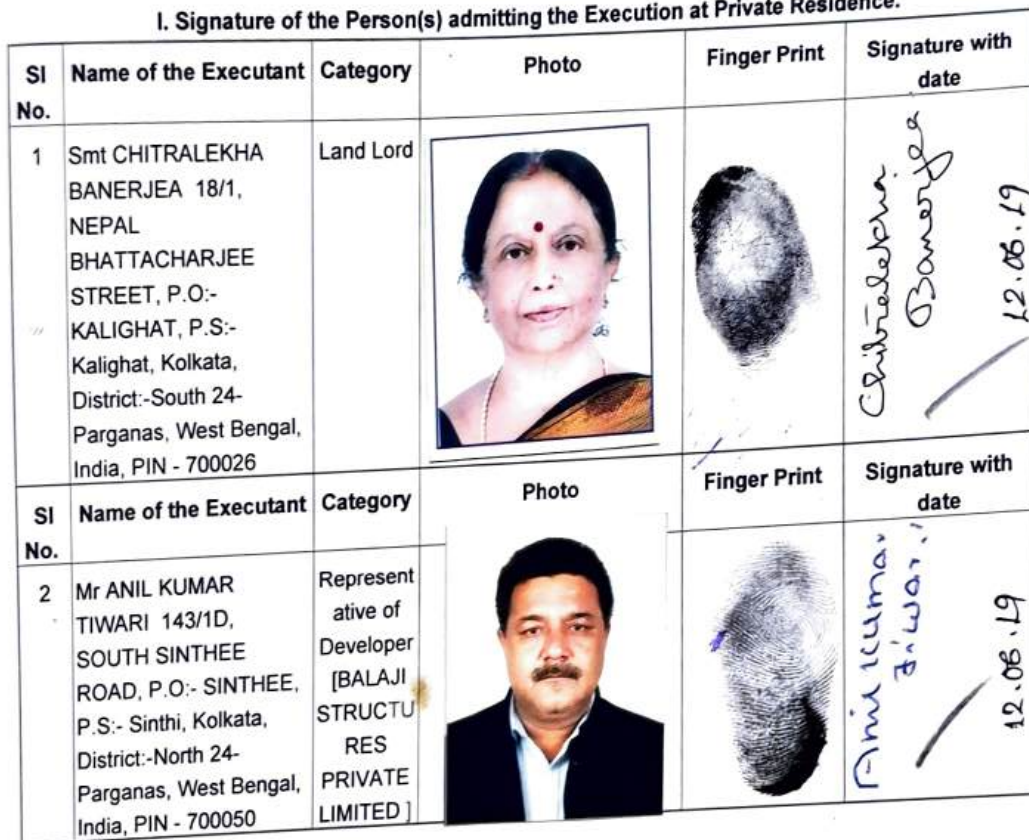 I. Signature of the Person(s) admitting the Execution at Private Residence.
Sl No.
Name of the Executant
Category
Photo
Finger Print
Signature with date
1
Smt CHITRALEKHA
BANERJEA 18/1,
NEPAL
BHATTACHARJEE
STREET, P.O:-
KALIGHAT, P.S:-
Kalighat, Kolkata,
District:-South 24-
Parganas, West Bengal,
India, PIN - 700026
Land Lord
Chitralekha
Banerjea
12.08.19
Sl No.
Name of the Executant
Category
Photo
Finger Print
Signature with date
2
Mr ANIL KUMAR
TIWARI 143/1D,
SOUTH SINTHEE
ROAD, P.O:- SINTHEE,
P.S:- Sinthi, Kolkata,
District:-North 24-
Parganas, West Bengal,
India, PIN - 700050
Represent
ative of
Developer
[BALAJI
STRUCTU
RES
PRIVATE
LIMITED ]
Anil Kumar
Tiwari
12.08.19